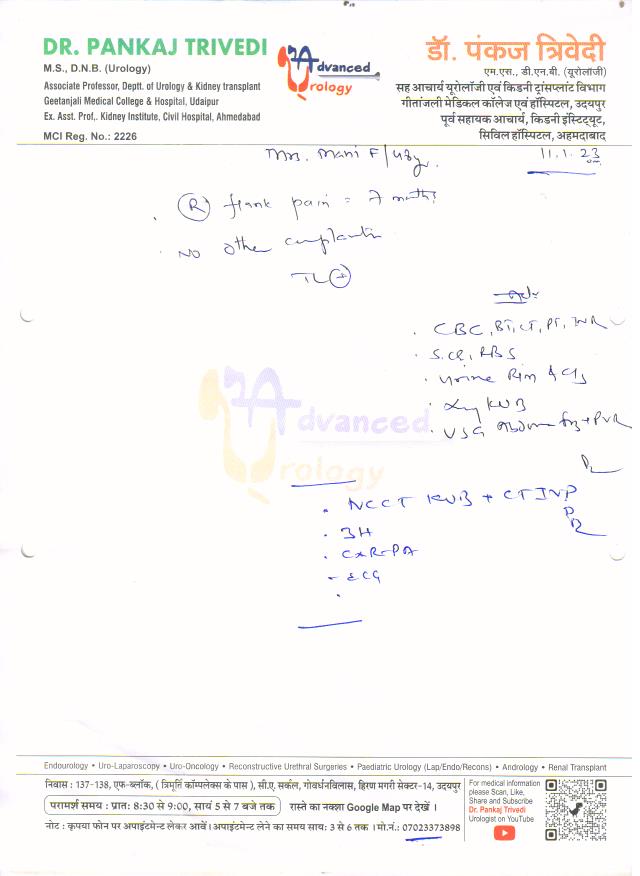 DR. PANKAJ TRIVEDI
M.S., D.N.B. (Urology)
Associate Professor, Deptt. of Urology & Kidney transplant
Geetanjali Medical College & Hospital, Udaipur
Ex. Asst. Prof,. Kidney Institute, Civil Hospital, Ahmedabad
MCI Reg. No.: 2226
Advanced
Urology
डॉ. पंकज त्रिवेदी
एम.एस., डी.एन.बी. (यूरोलॉजी)
सह आचार्य यूरोलॉजी एवं किडनी ट्रांसप्लांट विभाग
गीतांजली मेडिकल कॉलेज एवं हॉस्पिटल, उदयपुर
पूर्व सहायक आचार्य, किडनी इंस्टिट्यूट,
सिविल हॉस्पिटल, अहमदाबाद
Mrs. Mani F/43y. 11.1.23
(R) flank pain = 7 
No other 
TL (+)
CBC, BT, CT, PT, INR
S.CR, RBS
Urine R/m & C/s
Xray KUB
USG Abdomen + PVR
Advanced
Urology
NCCT KUB + CT IVP
3H
CXR-PA
ECG
Endourology • Uro-Laparoscopy • Uro-Oncology • Reconstructive Urethral Surgeries • Paediatric Urology (Lap/Endo/Recons) • Andrology • Renal Transplant
निवास : 137-138, एफ-ब्लॉक, ( त्रिमूर्ति कॉम्पलेक्स के पास ), सी.ए. सर्कल, गोवर्धनविलास, हिरण मगरी सेक्टर-14, उदयपुर
परामर्श समय : प्रात: 8:30 से 9:00, सायं 5 से 7 बजे तक रास्ते का नक्शा Google Map पर देखें ।
नोट : कृपया फोन पर अपाइंटमेन्ट लेकर आवें । अपाइंटमेन्ट लेने का समय साय: 3 से 6 तक । मो.नं.: 07023373898
For medical information
please Scan, Like,
Share and Subscribe
Dr. Pankaj Trivedi
Urologist on YouTube